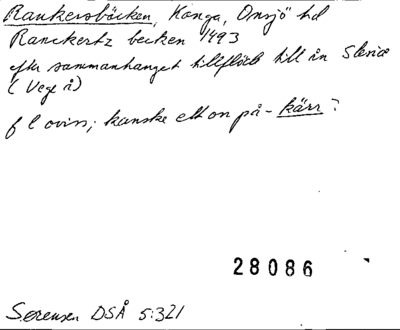 Rankersbäcken, Konga, Onsjö hd
Ranckertz becken 1493
efter sammanhanget tillflöde till ån Slevia
(Vege å)
f l oviss; kanske ett on på -kärr?
28086
Sørensen DSÅ 5:321